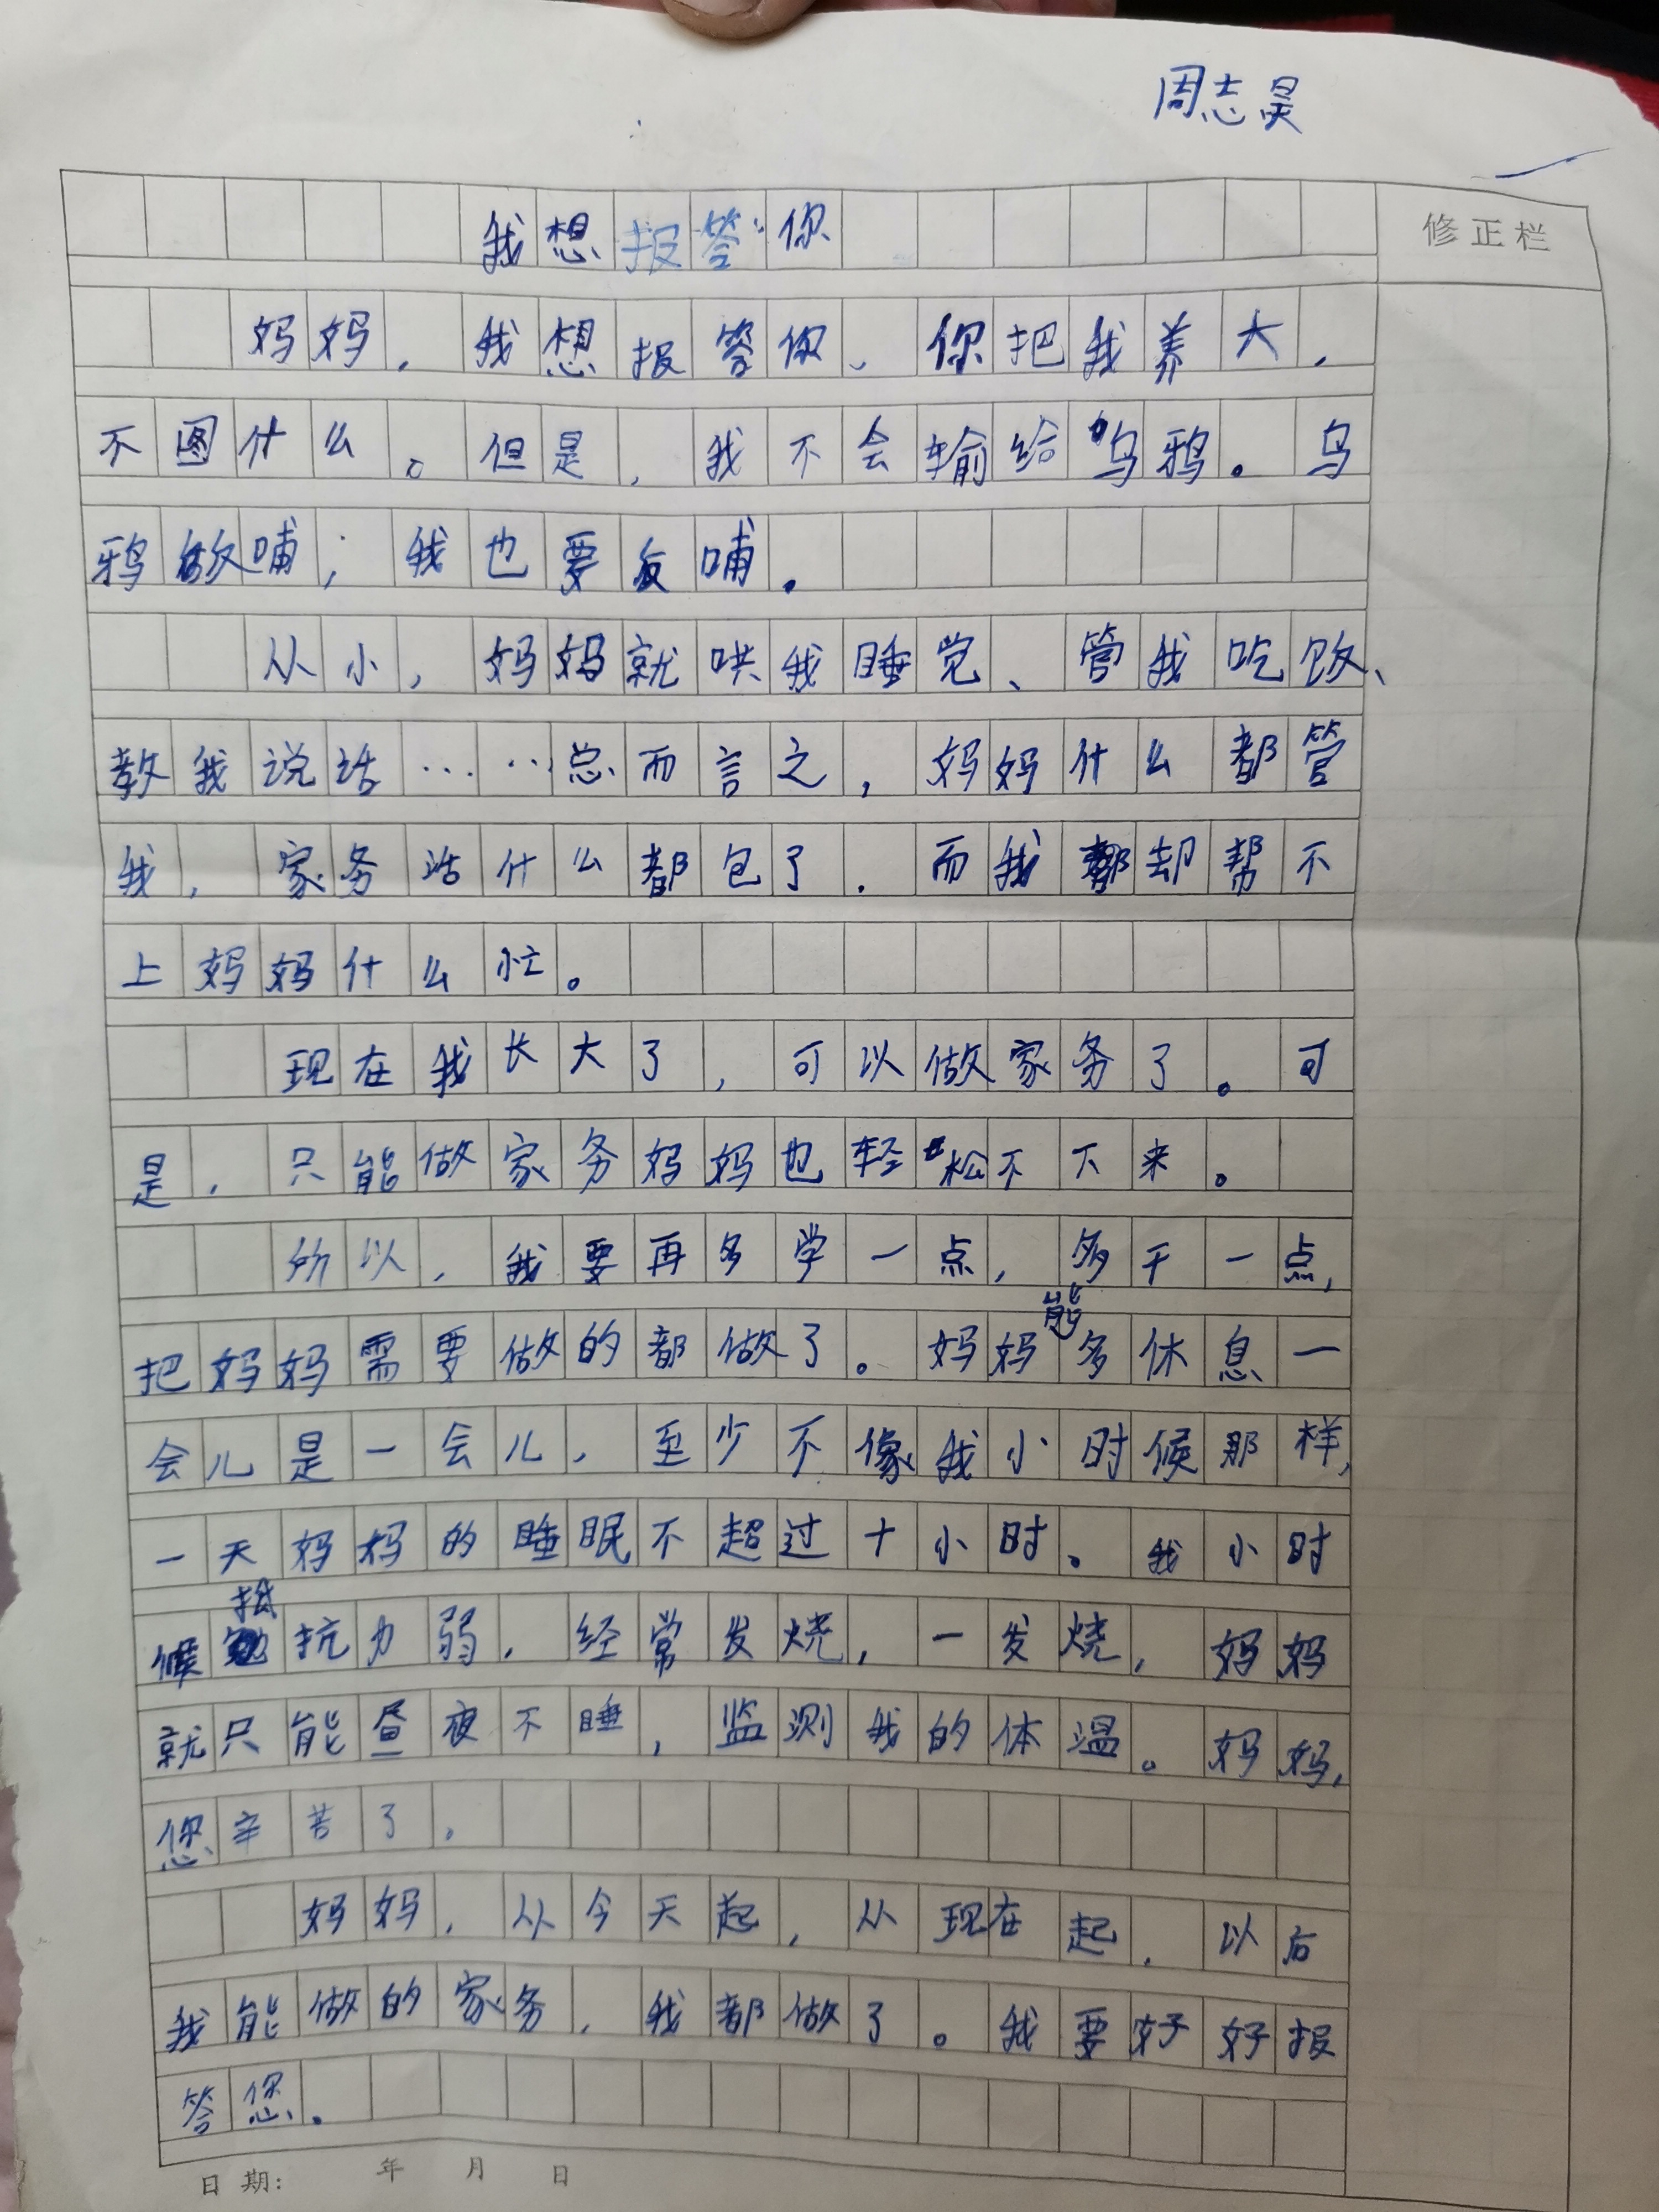 周志昊
我想报答你
修正栏
妈妈，我想报答你、你把我养大，
不图什么。但是，我不会输给乌鸦。乌
鸦反哺；我也要反哺。
从小，妈妈就哄我睡觉、管我吃饭、
教我说话……总而言之，妈妈什么都管
我，家务活什么都包了．而我却帮不
上妈妈什么忙。
现在我长大了，可以做家务了。可
是，只能做家务妈妈也轻松不下来。
所以，我要再多学一点，多干一点，
把妈妈需要做的都做了。妈妈能多休息一
会儿是一会儿，至少不像我小时候那样，
一天妈妈的睡眠不超过十小时。我小时
候抵抗力弱，经常发烧，一发烧，妈妈
就只能昼夜不睡，监测我的体温。妈妈，
您辛苦了。
妈妈，从今天起，从现在起，以后
我能做的家务，我都做了。我要好好报
答您．
日期: 年 月 日